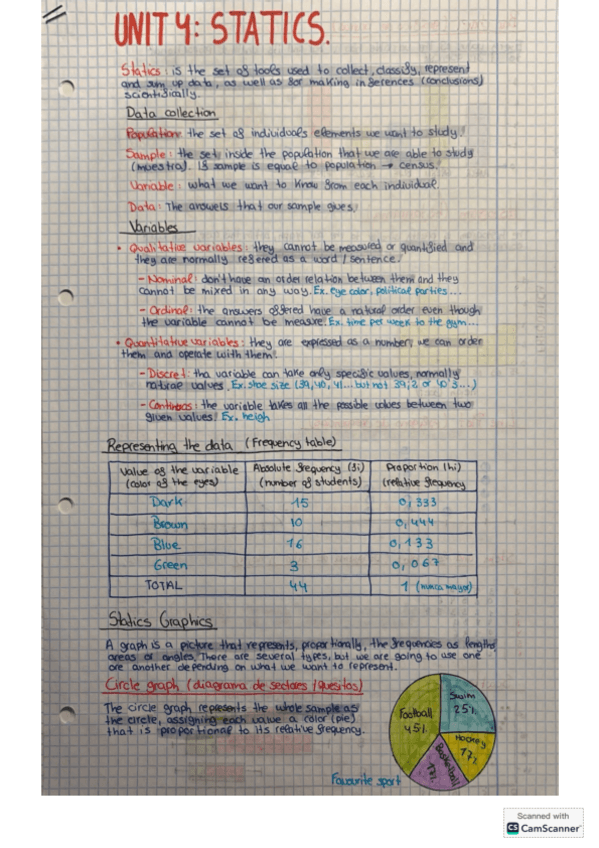 UNIT 4: STATICS.
Statics: is the set of tools used to collect, classify, represent
and sum up data, as well as for making inferences (conclusions)
scientifically.
Data collection
Population: the set of individuals elements we want to study.
Sample: the set inside the population that we are able to study
(muestra). If sample is equal to population → census.
Variable: what we want to know from each individual.
Data: The answers that our sample gives.
Variables
• Qualitative variables: they cannot be measured or quantified and
they are normally refered as a word / sentence.
- Nominal: don't have an order relation between them and they
cannot be mixed in any way. Ex. eye color, political parties...
- Ordinal: the answers offered have a natural order even though
the variable cannot be measure. Ex. time per week to the gym...
• Quantitative variables: they are expressed as a number, we can order
them and operate with them.
- Discret: tha variable can take only specific values, normally
natural values. Ex. shoe size (39, 40, 41... but not 39,2 or 40'3...)
- Continous: the variable takes all the possible values between two
given values. Ex. heigh
Representing the data (Frequency table)
Value of the variable Absolute frequency (fi) Proportion (hi)
(color of the eyes) (number of students) (relative frequency
Dark 15 0,333
Brown 10 0,444
Blue 16 0,133
Green 3 0,067
TOTAL 44 1 (nunca mayor)
Statics Graphics
A graph is a picture that represents, proportionally, the frequencies as lengths,
areas or angles. There are several types, but we are going to use one
ore another depending on what we want to represent.
Circle graph (diagrama de sectores/quesitos)
The circle graph represents the whole sample as
the circle, assigning each value a color (pie)
that is proportional to its relative frequency.
Swim
25%
Football
45%
Hockey
17%
Basketball
17%
Favourite sport
Scanned with
CS CamScanner